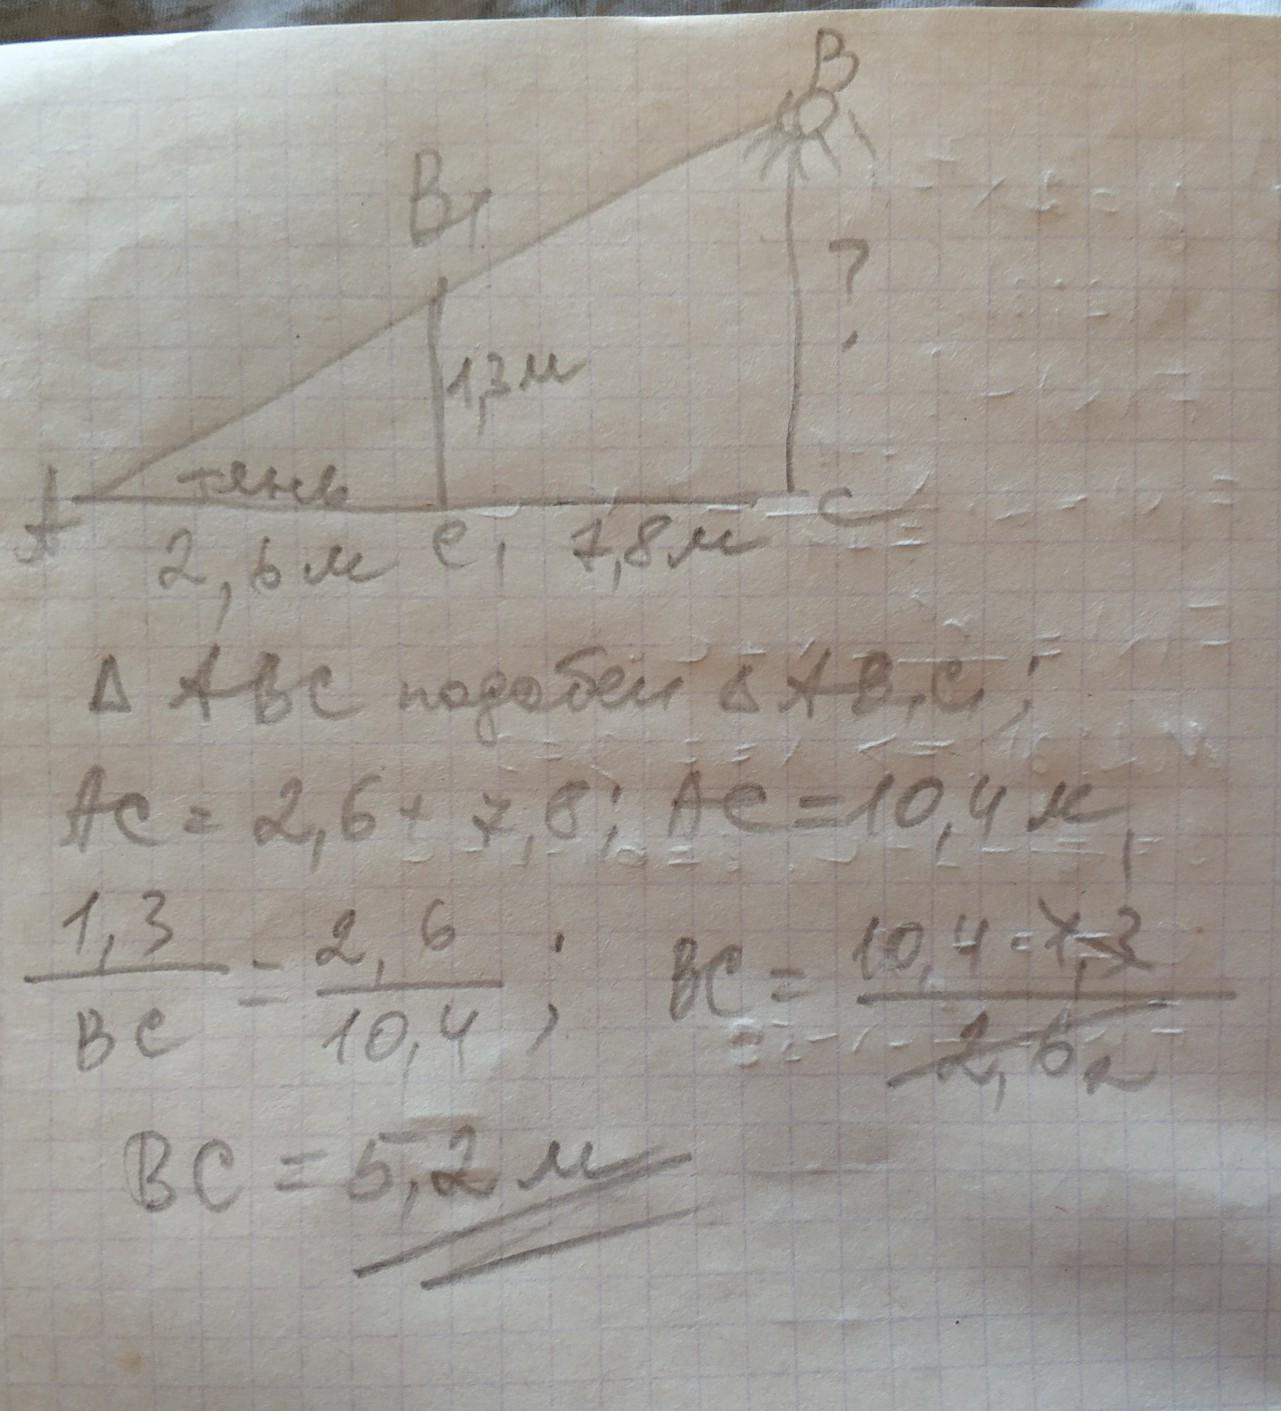 B
B₁
?
1,3м
тень
A
2,6 м C₁ 7,8м C
Δ ABC подобен Δ AB₁C₁;
AC = 2,6 + 7,8; AC = 10,4 м
1,3 / BC = 2,6 / 10,4 ; BC = 10,4 · 1,3 / 2,6 2
1
BC = 5,2 м